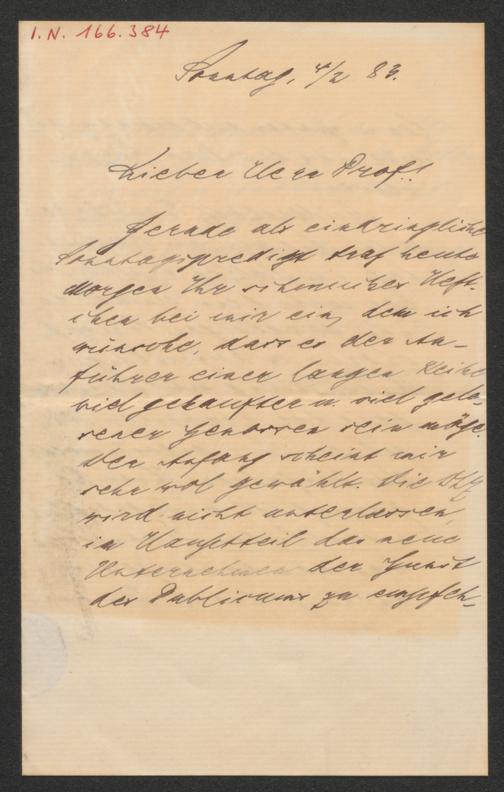 I.N. 166.384
Sonntag, 4/2 83.
Lieber Herr Prof.!
Gerade als eindringliche
Sonntagspredigt traf heute
Morgen Ihr schmuckes Heft-
chen bei mir ein, dem ich
wünsche, dass es der An-
führer einer langen Reihe
viel gekaufter u. viel gele-
sener Genossen sein möge.
Der Anfang scheint mir
sehr wol gewählt. Die DLZ
wird nicht unterlassen,
im Hauptteil das neue
Unternehmen der Gunst
des Publicums zu empfeh-